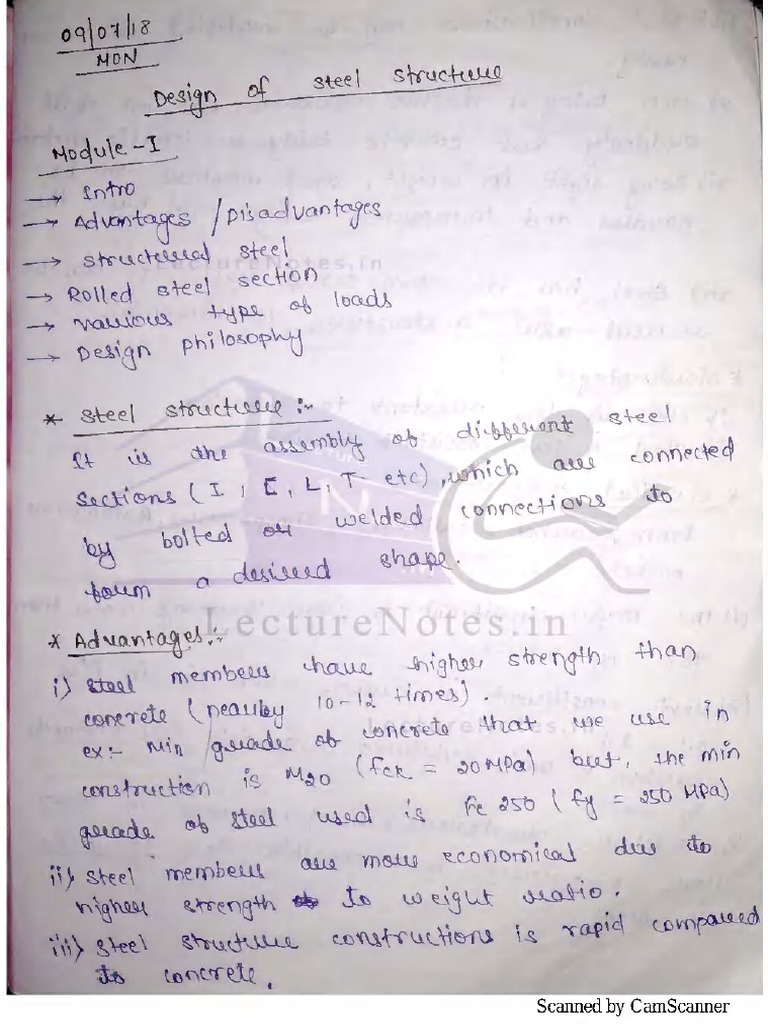 09/07/18
MON
Design of steel structure
Module-I
→ Intro
→ Advantages/Disadvantages
→ structural steel
LectureNotes.in
→ Rolled steel section
→ various type of loads
→ Design philosophy
* Steel structure :-
It is the assembly of different steel
sections (I, C, L, T etc), which are connected
by bolted or welded connections to
form a desired shape.
LectureNotes.in
* Advantages:-
i) steel members have higher strength than
concrete (nearby 10-12 times).
LectureNotes.in
ex:- Min grade of concrete that we use in
construction is M20 (fck = 20 MPa) but, the min
grade of steel used is Fe 250 (fy = 250 MPa)
ii) steel members are more economical due to
higher strength to weight ratio.
iii) steel structure constructions is rapid compared
to concrete.
Scanned by CamScanner